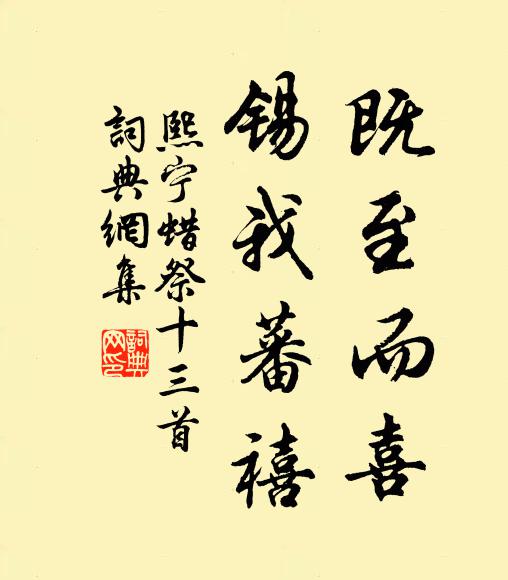 既至而喜
锡我蕃禧
熙宁蜡祭十三首
詞典網集
詞典网印